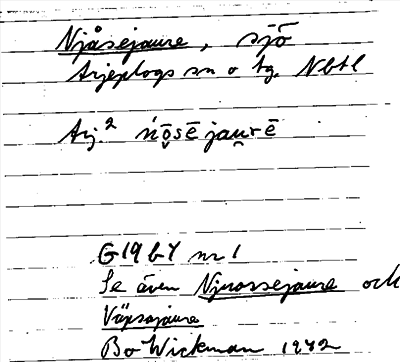 Njåsejaure, sjö
Arjeplogs sn o tg. Nbtl
Arj.² ńo̬sē jau̯rē
G19 b7 nr 1
Se även Njuossejaure och
Väpsojaure
Bo Wickman 1942